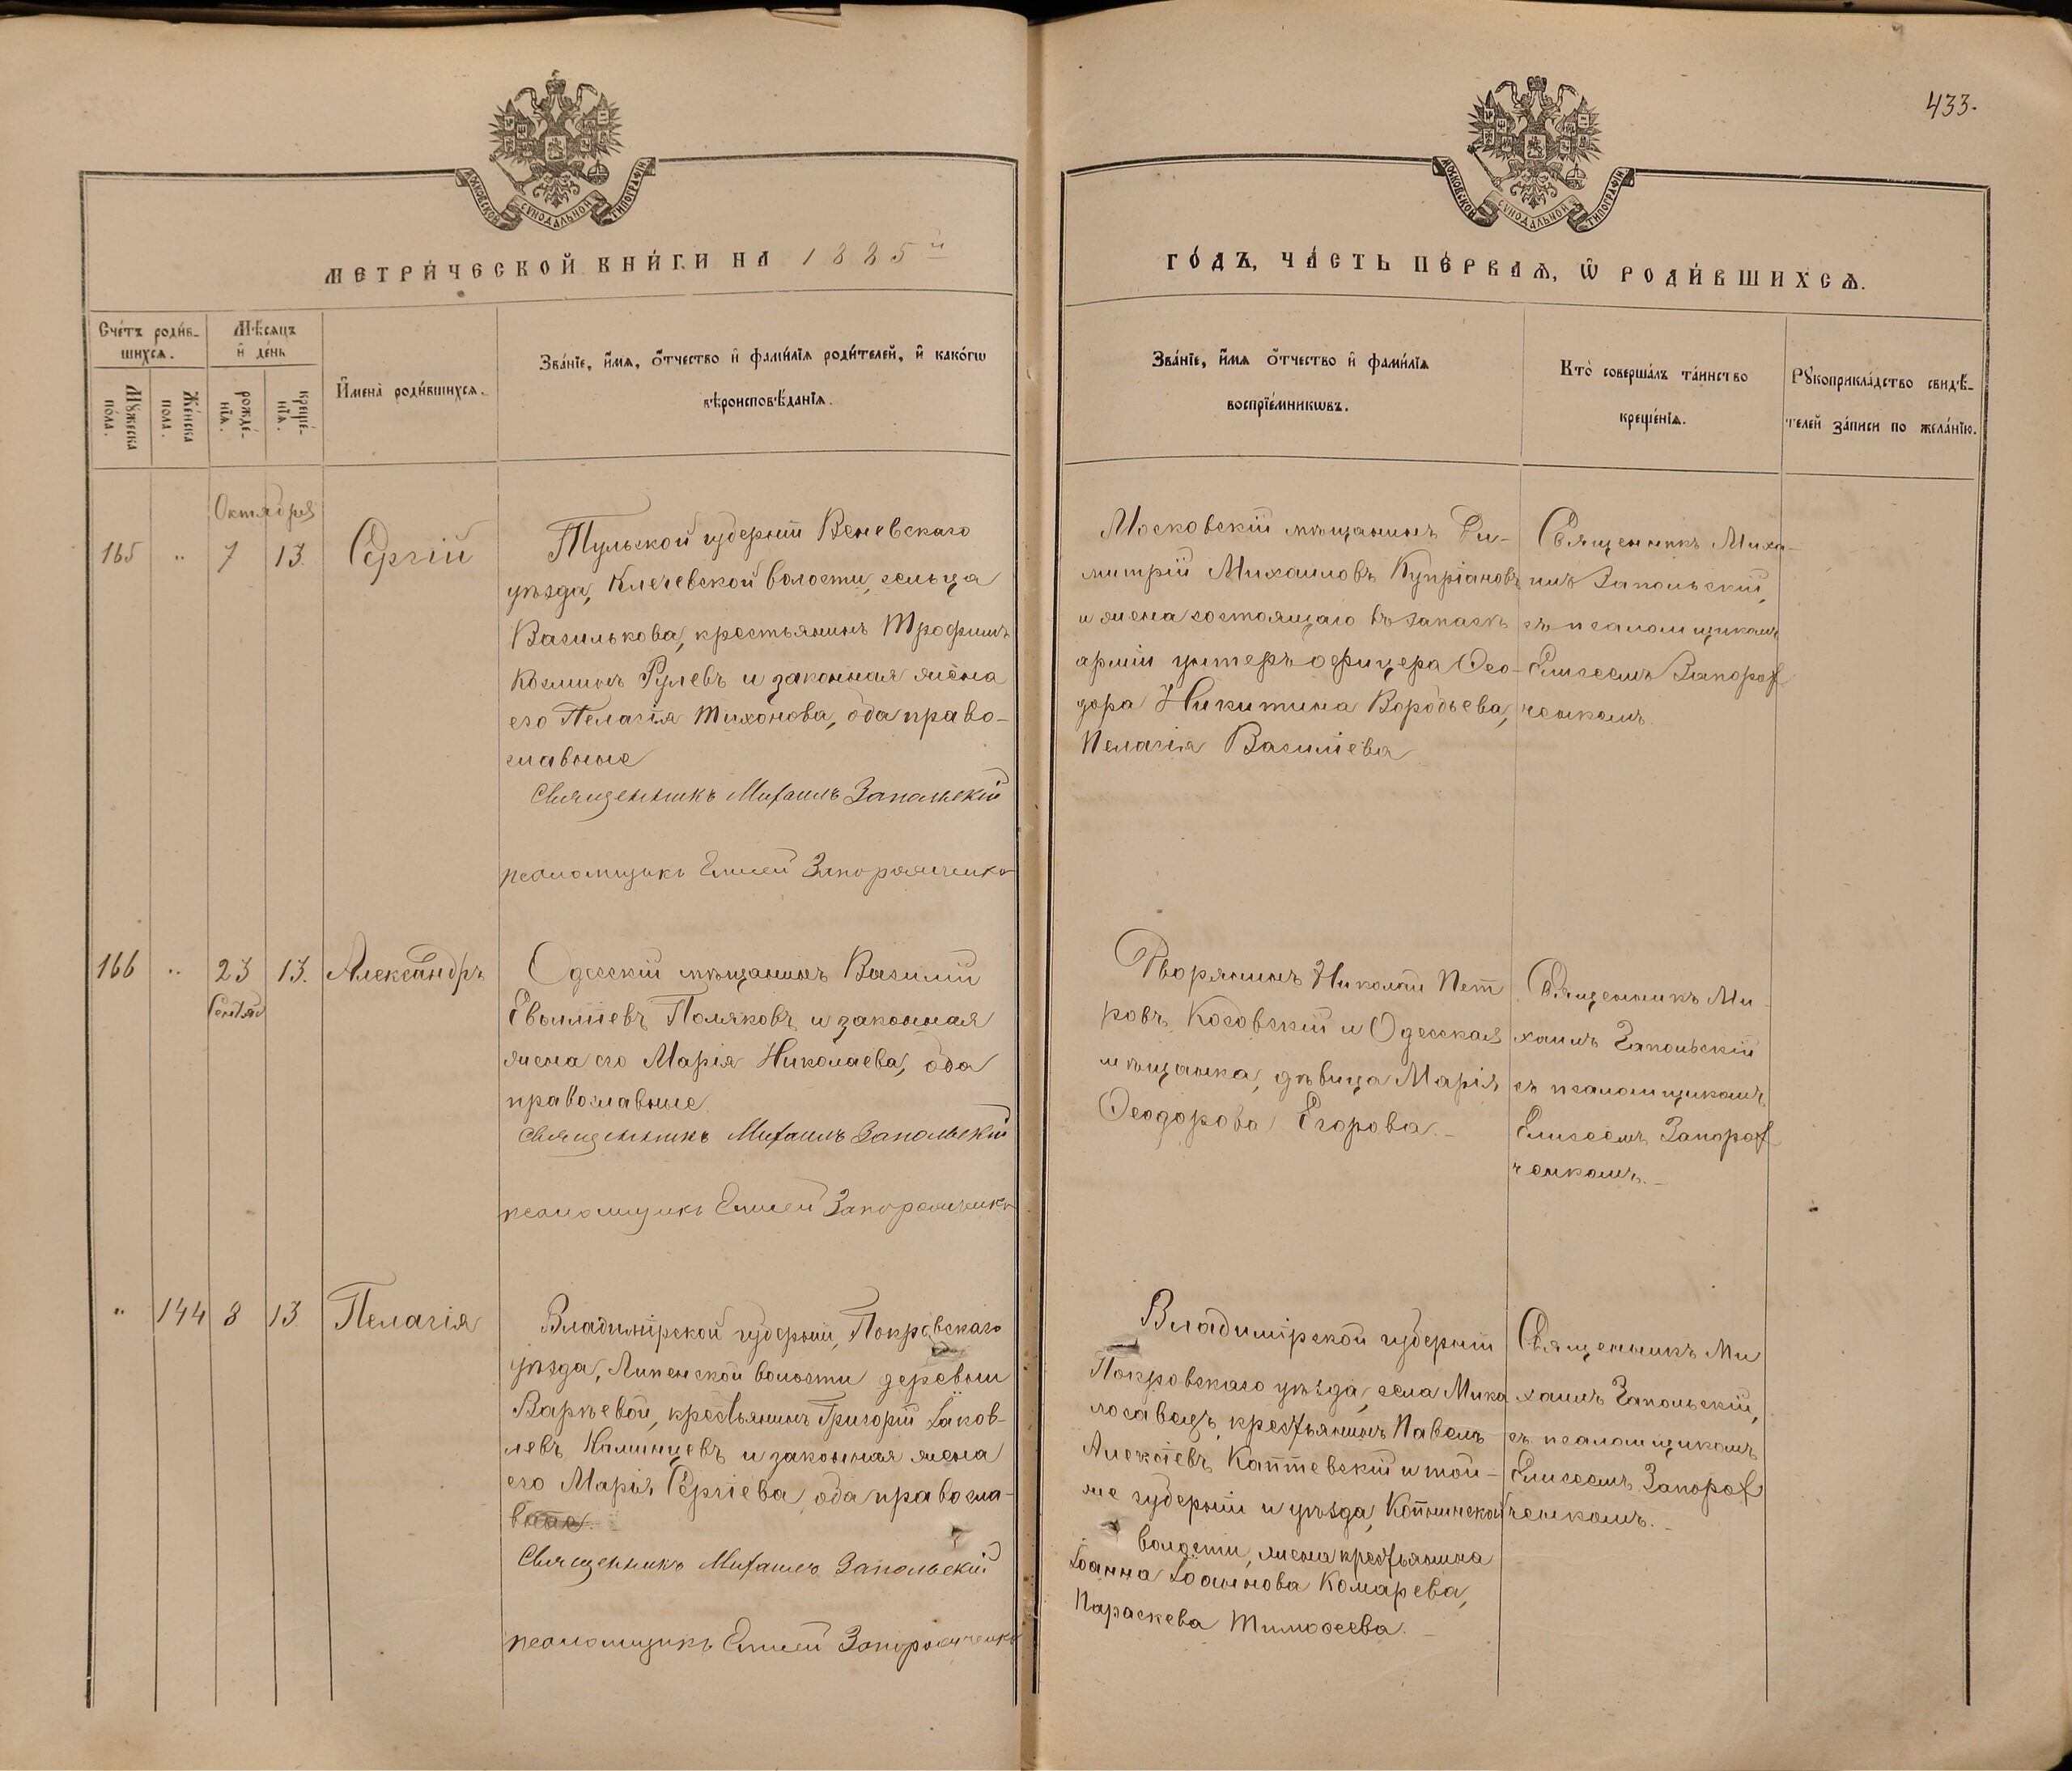 433.
МОСКОВСКОЙ СУНОДАЛЬНОЙ ТИПОГРАФІИ
МОСКОВСКОЙ СУНОДАЛЬНОЙ ТИПОГРАФІИ
МЕТРИ́ЧЕСКОЙ КНИ́ГИ НА 1885й
ГО́ДЪ, ЧА́СТЬ ПЕ́РВАѦ, Ѿ РОДИ́ВШИХСѦ.
Сче́тъ роди́в-
шихсѧ.
Мꙋ́жеска
по́ла.
Же́нска
пола.
Мѣ́сѧцъ
и҆ де́нь
рожде́-
нїѧ.
креще́-
нїѧ.
И҆мена̀ роди́вшихсѧ.
Зва́нїе, и҆́мѧ, ѻ҆́тчество и҆ фами́лїѧ роди́телей, и҆ како́гѡ
вѣроисповѣ́данїѧ.
Зва́нїе, и҆́мѧ ѻ҆́тчество и҆ фами́лїѧ
воспрїе́мникѡвъ.
Кто̀ соверша́лъ та́инство
креще́нїѧ.
Рꙋкоприкла́дство свидѣ́-
телей за́писи по жела́нїю.
Октября
165 " 7 13. Сергій
Тульской губерніи Веневскаго
уѣзда, Клечевской волости, сельца
Василькова, крестьянинъ Трофимъ
Козминъ Рулевъ и законная жена
его Пелагія Тихонова, оба право-
славные
Священникъ Михаилъ Запольскій
псаломщикъ Елисей Запорожченко
Московскій мѣщанинъ Ди-
митрій Михаиловъ Купріановъ
и жена состоящаго въ запасѣ
арміи унтеръ офицера Ѳео-
дора Никитина Воробьева,
Пелагія Василіева
Священникъ Миха-
илъ Запольскій,
съ псаломщикомъ
Елисеемъ Запорож
ченкомъ.
166 " 23 13. Александръ
Сентяб
Одесскій мѣщанинъ Василій
Поляковъ и законная
жена его Марія Николаева, оба
православные.
Священникъ Михаилъ Запольскій
псаломщикъ Елисей Запорожченко
Дворянинъ Николай Пет
ровъ Косовскій и Одесская
мѣщанка, дѣвица Марія
Ѳеодорова Егорова.
Священникъ Ми-
хаилъ Запольскій
съ псаломщикомъ
Елисеемъ Запорож
ченкомъ.
" 144 8 13. Пелагія
Владимірской губерніи, Покровскаго
уѣзда, Липенской волости деревни
Варѣевой, крестьянинъ Григорій Іаков-
левъ Каминцевъ и законная жена
его Марія Сергіева, оба правосла-
вные.
Священникъ Михаилъ Запольскій
псаломщикъ Елисей Запорожченко
Владимірской губерніи
Покровскаго уѣзда, села
крестьянинъ Павелъ
Алексѣевъ Каптевскій и той-
же губерніи и уѣзда,
волости, жена крестьянина
Іоанна Іоаннова Комарева,
Параскева Тимоѳеева.
Священникъ Ми
хаилъ Запольскій,
съ псаломщикомъ
Елисеемъ Запорож
ченкомъ.